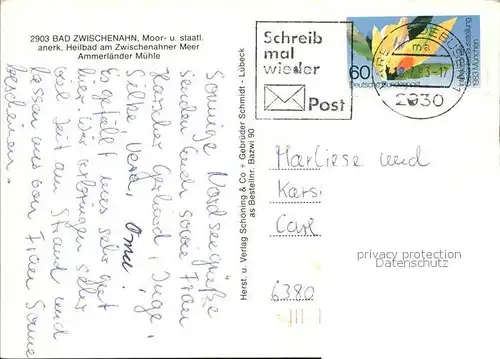 2903 BAD ZWISCHENAHN, Moor- u. staatl.
anerk. Heilbad am Zwischenahner Meer
Ammerländer Mühle
Sonnige Nordseegrüße
senden Euch sowie Frau
Gerlind, Inge,
Silke Oma.
Es gefällt uns sehr gut
hier. Wir verbringen sehr
viel Zeit am Strand und
lassen uns von Frau Sonne
bescheinen.
Herst. u. Verlag Schöning & Co + Gebrüder Schmidt - Lübeck
as Bestellnr. Bazwi 90
Schreib
mal
wieder
Post
60
Deutsche Bundespost
1983 München
83-17
2930
Marliese und
Kars
Carl
6380
privacy protection
Datenschutz